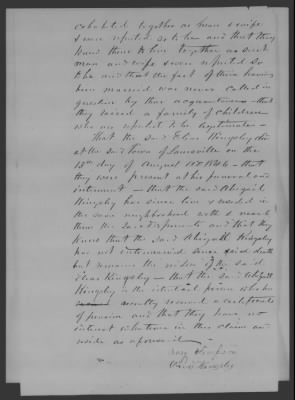 cohabited together as man & wife
& were reputed so to be and that they
knew them to live together as such
man and wife & were reputed so
to be and that the fact of their having
been married was never called in
question by their acquaintances – that
they raised a family of children
who are reputed to be legitimate –
That the said Elias Kingsley died
at the said Town of on the
15th day of August AD 1846 – that
they were present at his funeral and
interment – that the said Abigail
Kingsley has since lived & resided in
the same neighborhood with & near
them the said deponents and that they
know that the said Abigail Kingsley
has not intermarried since said death
but remains the widow of the said
Elias Kingsley – that the said Abigail
Kingsley is the identical person who has
recently received a certificate
of pension and that they have no
interest whatever in this claim and
reside as aforesaid
Simpson
Kingsley